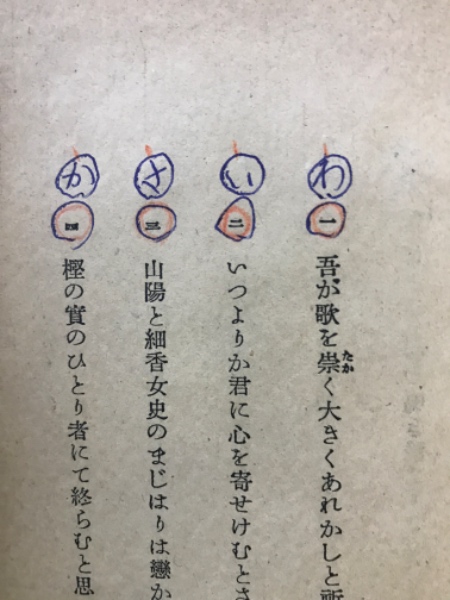 わ 一 吾が歌を崇たかく大きくあれかしと
い 二 いつよりか君に心を寄せけむとさ
さ 三 山陽と細香女史のまじはりは戀か
か 四 樫の實のひとり者にて終らむと思